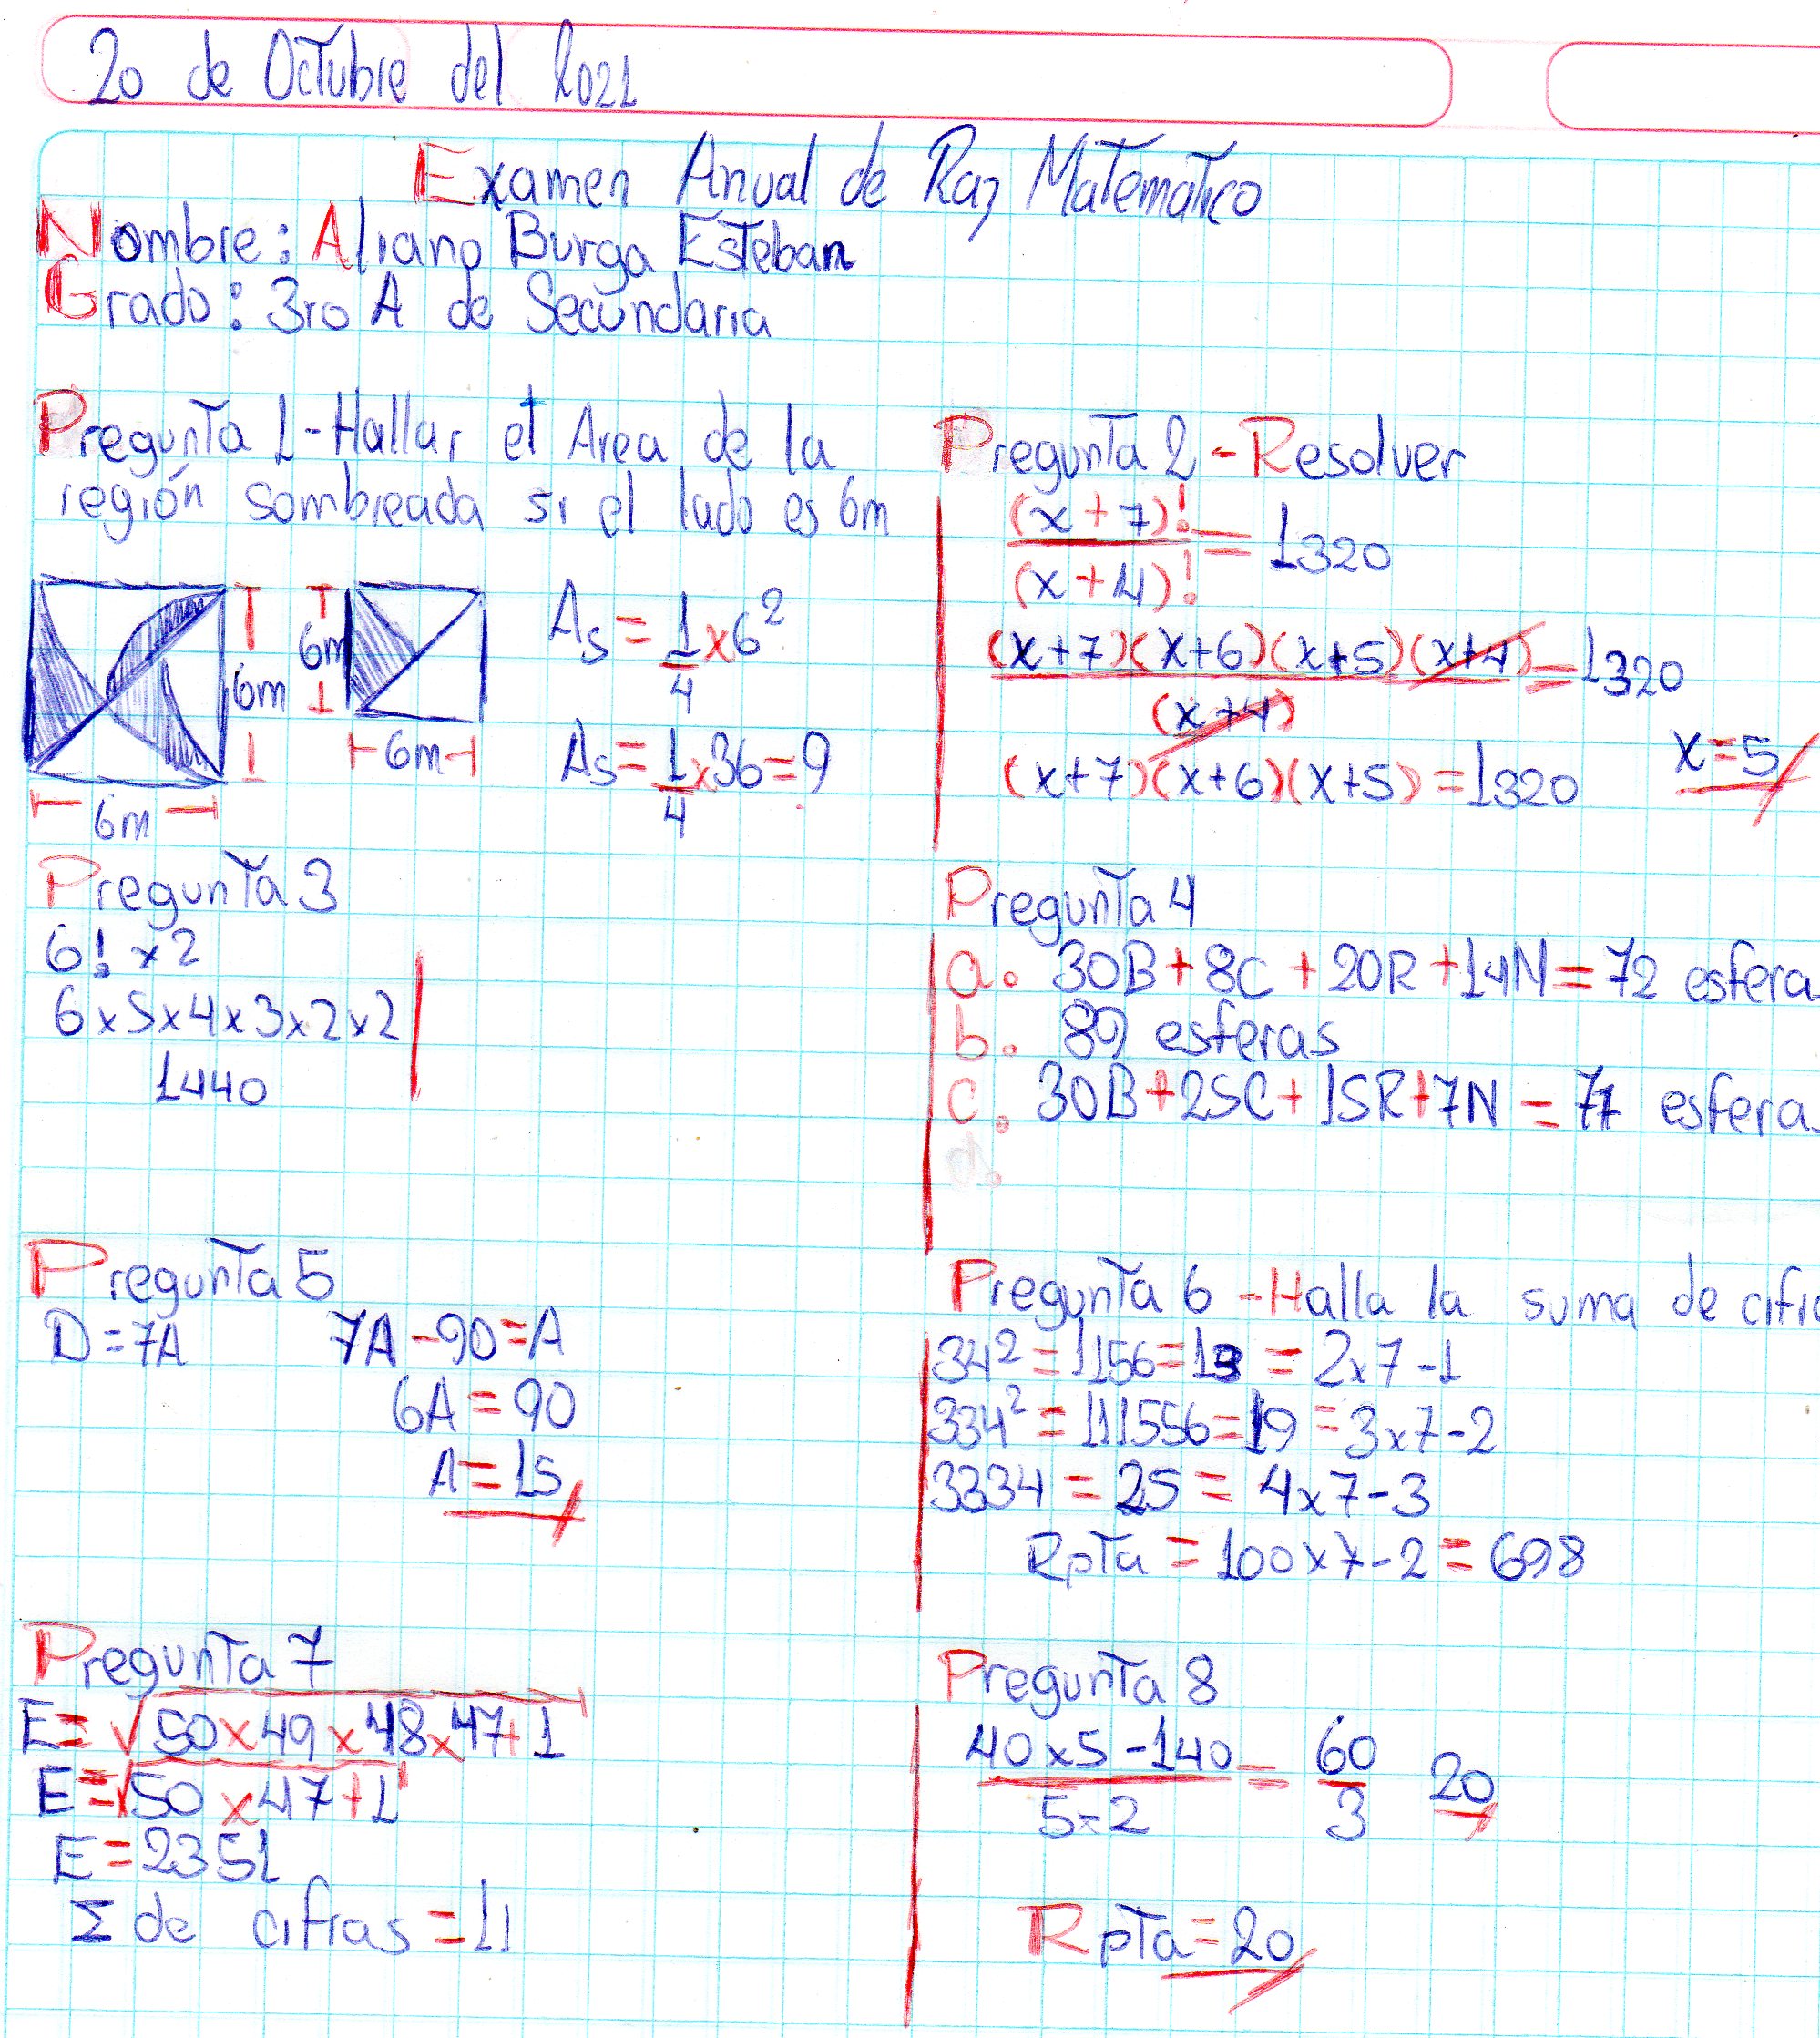 20 de Octubre del 2021
Examen Anual de Raz Matematico
Nombre: Aliano Burga Esteban
Grado: 3ro A de Secundaria
Pregunta 1-Hallar el Area de la
región sombreada si el lado es 6m
6m
6m
6m
6m
As = 1/4 x 6²
As = 1/4 x 36 = 9
Pregunta 2 - Resolver
(x+7)!/(x+4)! = 1320
(x+7)(x+6)(x+5)(x+4)/(x+4) = 1320
(x+7)(x+6)(x+5) = 1320
x = 5
Pregunta 3
6! x 2
6x5x4x3x2x2
1440
Pregunta 4
a. 30B + 8C + 20R + 14N = 72 esfera
b. 89 esferas
c. 30B + 25C + 15R + 7N = 77 esfera
Pregunta 5
D = 7A
7A - 90 = A
6A = 90
A = 15
Pregunta 6 - Halla la suma de cifra
34² = 1156 = 13 = 2x7-1
334² = 111556 = 19 = 3x7-2
3334 = 25 = 4x7-3
Rpta = 100x7-2 = 698
Pregunta 7
E = √50x49x48x47+1
E = √50x47+1
E = 2351
Σ de cifras = 11
Pregunta 8
40x5-140/5-2 = 60/3 20
Rpta = 20